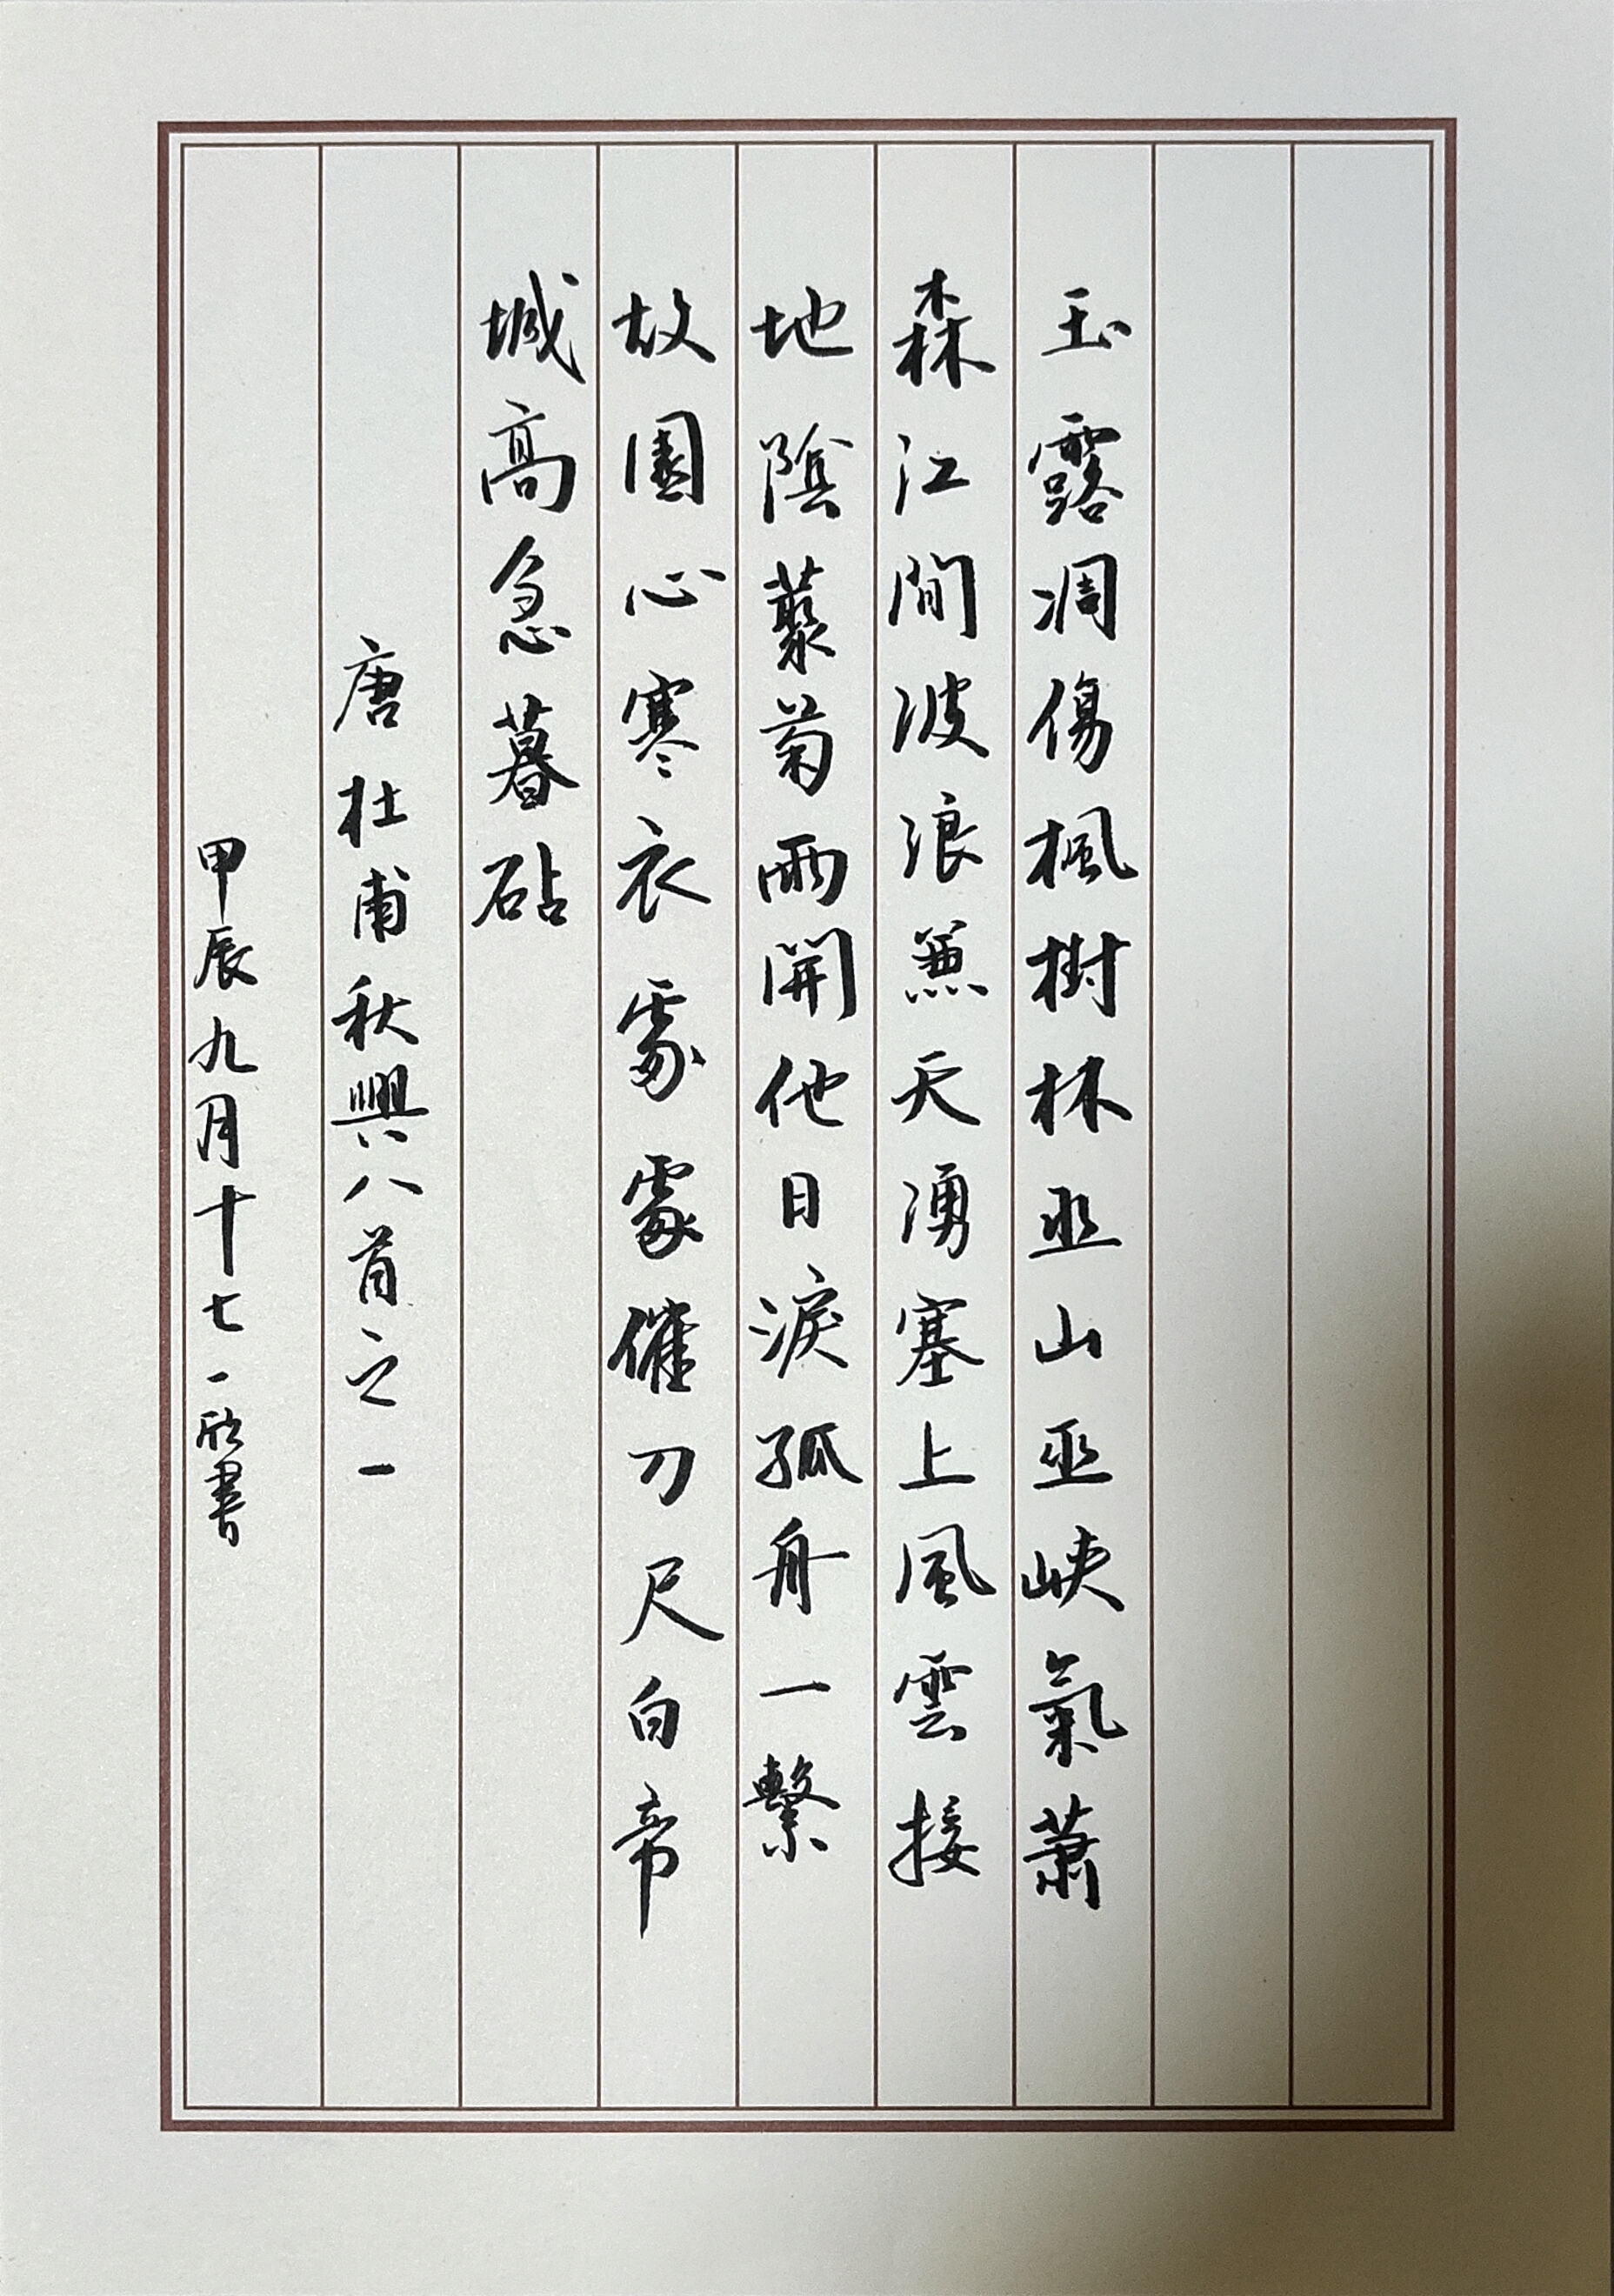 玉露凋傷楓樹林巫山巫峽氣蕭
森江間波浪兼天湧塞上風雲接
地陰叢菊兩開他日淚孤舟一繫
故園心寒衣處處催刀尺白帝
城高急暮砧
唐杜甫秋興八首之一
甲辰九月十七一欣書